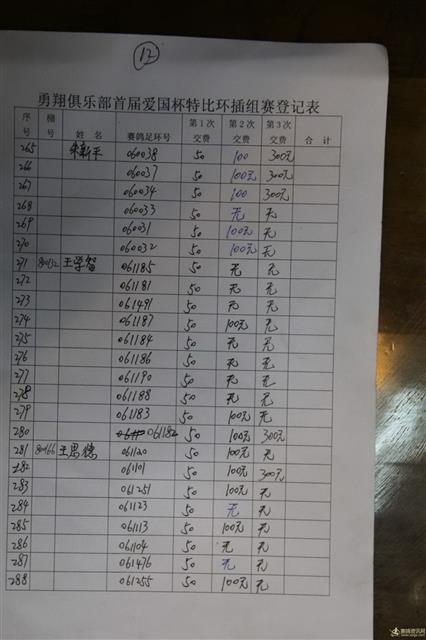 12
勇翔俱乐部首届爱国杯特比环插组赛登记表
序号 棚号 姓名 赛鸽足环号 第1次交费 第2次交费 第3次交费 合计
265 朱新平 060038 50 100 300元
266 060037 50 100元 300元
267 060034 50 100 300元
268 060033 50 无 无
269 060031 50 100元 无
270 060032 50 100元 无
271 80132 王学智 061185 50 无 无
272 061181 50 无 无
273 061491 50 无 无
274 061187 50 100元 无
275 061184 50 无 无
276 061186 50 无 无
277 061190 50 无 无
278 061188 50 无 无
279 061183 50 100元 无
280 061182 50 100元 300元
281 80166 王思德 061120 50 100元 无
282 061101 50 100元 300元
283 061251 50 100元 无
284 061123 50 无 无
285 061113 50 100元 无
286 061104 50 无 无
287 061476 50 无 无
288 061255 50 100元 无